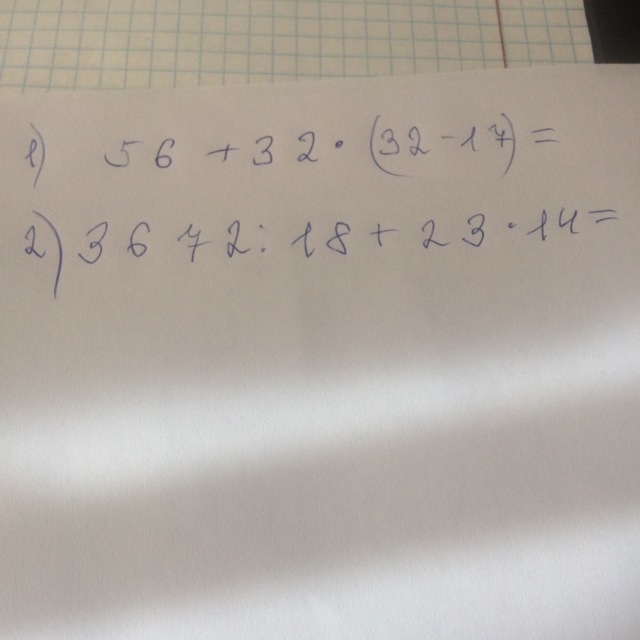 1) 56 + 32 · (32 - 17) =
2) 3672 : 18 + 23 · 14 =